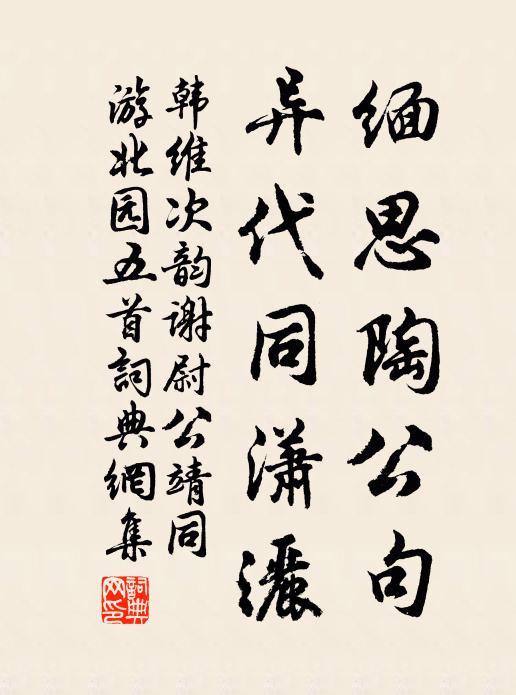 缅思陶公句
异代同潇灑
韩维次韵谢尉公靖同
游北园五首詞典網集
詞典網印